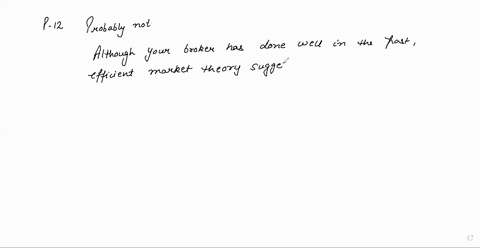 P-12 Probably not
Although your broker has done well in the past,
efficient market theory sugge